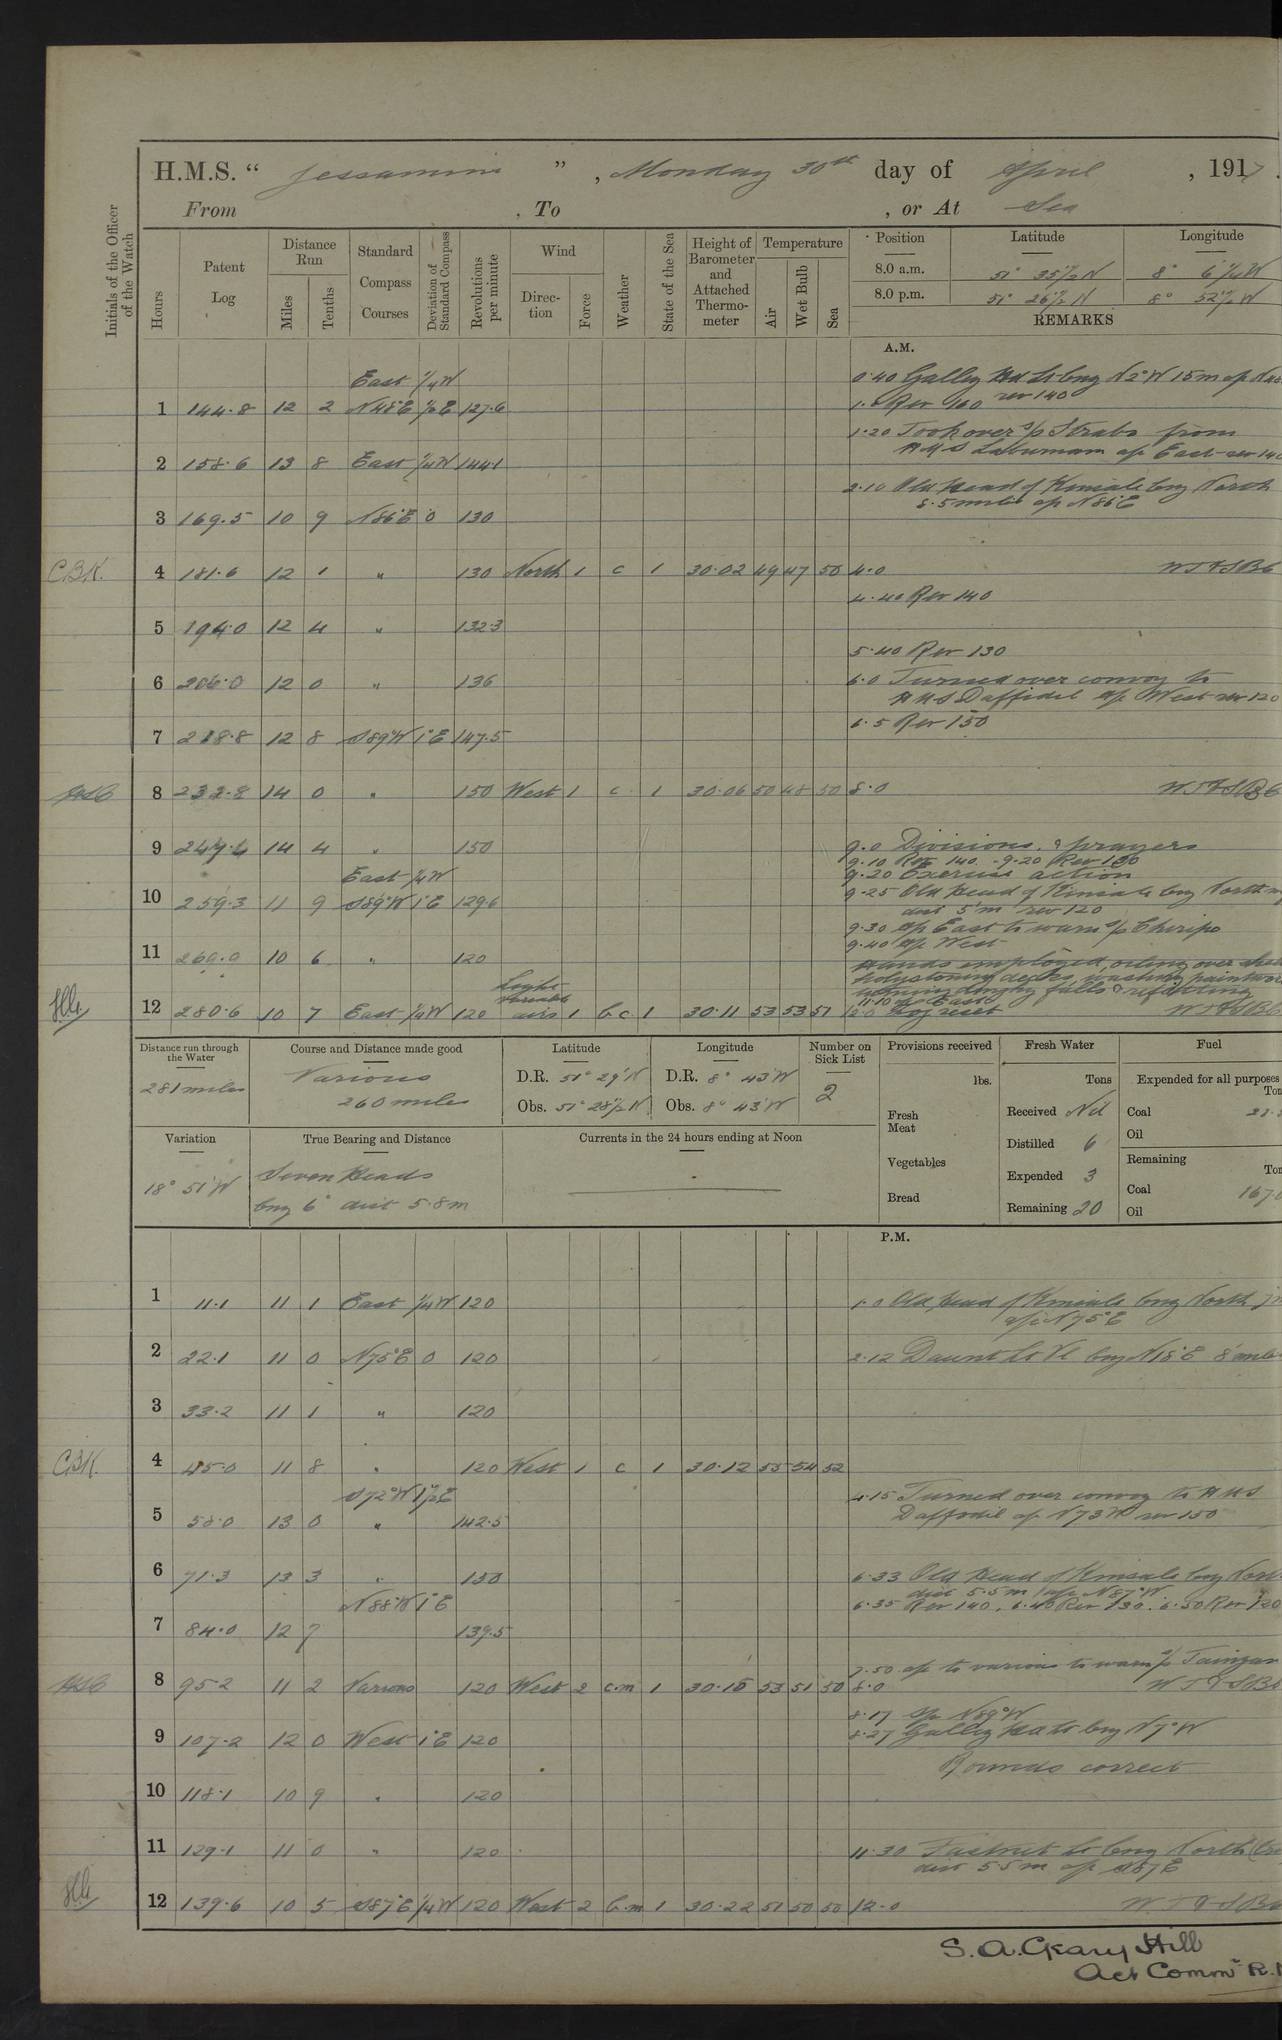 H.M.S. " Jessamine ", Monday 30th day of April , 1917.
From , To , or At Sea
Initials of the Officer of the Watch
Hours
Patent Log
Distance Run
Miles
Tenths
Standard Compass Courses
Deviation of Standard Compass
Revolutions per minute
Wind
Direction
Force
Weather
State of the Sea
Height of Barometer and Attached Thermometer
Temperature
Air
Wet Bulb
Sea
Position Latitude Longitude
8.0 a.m. 51° 35½ N 8° 6¼ W
8.0 p.m. 51° 26½ N 8° 52½ W
REMARKS
A.M.
East ¼W 0.40 Galley Hd Lt brg N2°W 15m a/c N48
1 144.8 12 2 N48°E ½E 127.6 1.0 Rev 160 rev 140
1.20 Took over s/s Strabo from
2 158.6 13 8 East ¼W 144.1 HMS Laburnam a/c East rev 140
2.10 Old Head of Kinsale brg North
3 169.5 10 9 N86°E 0 130 8.5 miles a/c N86°E
CBK. 4 181.6 12 1 " 130 North 1 c 1 30.02 49 47 50 4.0
4.40 Rev 140
5 194.0 12 4 " 132.3
5.40 Rev 130
6 206.0 12 0 " 136 6.0 Turned over convoy to
HMS Daffodil a/c West rev 120
6.5 Rev 150
7 218.8 12 8 S89°W 1°E 147.5
8 232.8 14 0 " 150 West 1 c 1 30.06 50 48 50 8.0
9 247.4 14 4 " 150 9.0 Divisions & prayers
9.10 Rev 140. 9.20 Rev 130
East ¼W 9.20 Exercise action
10 259.3 11 9 S89°W 1°E 129.6 9.25 Old Head of Kinsale brg North
dist 5'm rev 120
9.30 a/c East to warn s/s Chiripo
9.40 a/c West
11 269.9 10 6 " 120
Hands employed
holystoning decks, washing paintwork
dinghy falls & refitting
11.10 a/c East
12 280.6 10 7 East ¼W 120 Light variable airs 1 bc 1 30.11 53 53 51 12.0 Log reset
Distance run through the Water
281 miles
Course and Distance made good
Various
260 miles
Latitude
D.R. 51° 29' N
Obs. 51° 28½ N
Longitude
D.R. 8° 43' W
Obs. 8° 43' W
Number on Sick List
2
Provisions received
lbs.
Fresh Meat
Vegetables
Bread
Fresh Water
Tons
Received Nil
Distilled 6
Expended 3
Remaining 20
Fuel
Expended for all purposes
Coal
Oil
Remaining
Coal 167
Oil
Variation
18° 51' W
True Bearing and Distance
Seven Heads
brg 6° dist 5.8m
Currents in the 24 hours ending at Noon
P.M.
1 11.1 11 1 East ¼W 120 1.0 Old Head of Kinsale brg North
a/c N75°E
2 22.1 11 0 N75°E 0 120 2.12 Daunt Lt Vl brg N18°E 8 miles
3 33.2 11 1 " 120
CBK. 4 45.0 11 8 " 120 West 1 c 1 30.12 55 54 52
S72°W 1½E 4.15 Turned over convoy to HMS
5 58.0 13 0 " 142.5 Daffodil a/c N73W rev 150
6 71.3 13 3 " 150 6.33 Old Head of Kinsale brg North
dist 5.5m a/c N87°W
N88°W 1°E 6.35 Rev 140. 6.40 Rev 130. 6.50 Rev 120
7 84.0 12 7 139.5
7.50 a/c to various to warn s/s
8 95.2 11 2 Various 120 West 2 c.m 1 30.15 53 51 50 8.0
8.17 a/c N89°W
9 107.2 12 0 West 1°E 120 8.27 Galley Hd Lt brg N7°W
Rounds correct
10 118.1 10 9 " 120
11 129.1 11 0 " 120 11.30 Fastnet Lt brg North
dist 5.5m a/c S87E
12 139.6 10 5 S87°E ¼W 120 West 2 b.m 1 30.22 51 50 50 12.0
S. A. Geary Hill
Act Commr R.N